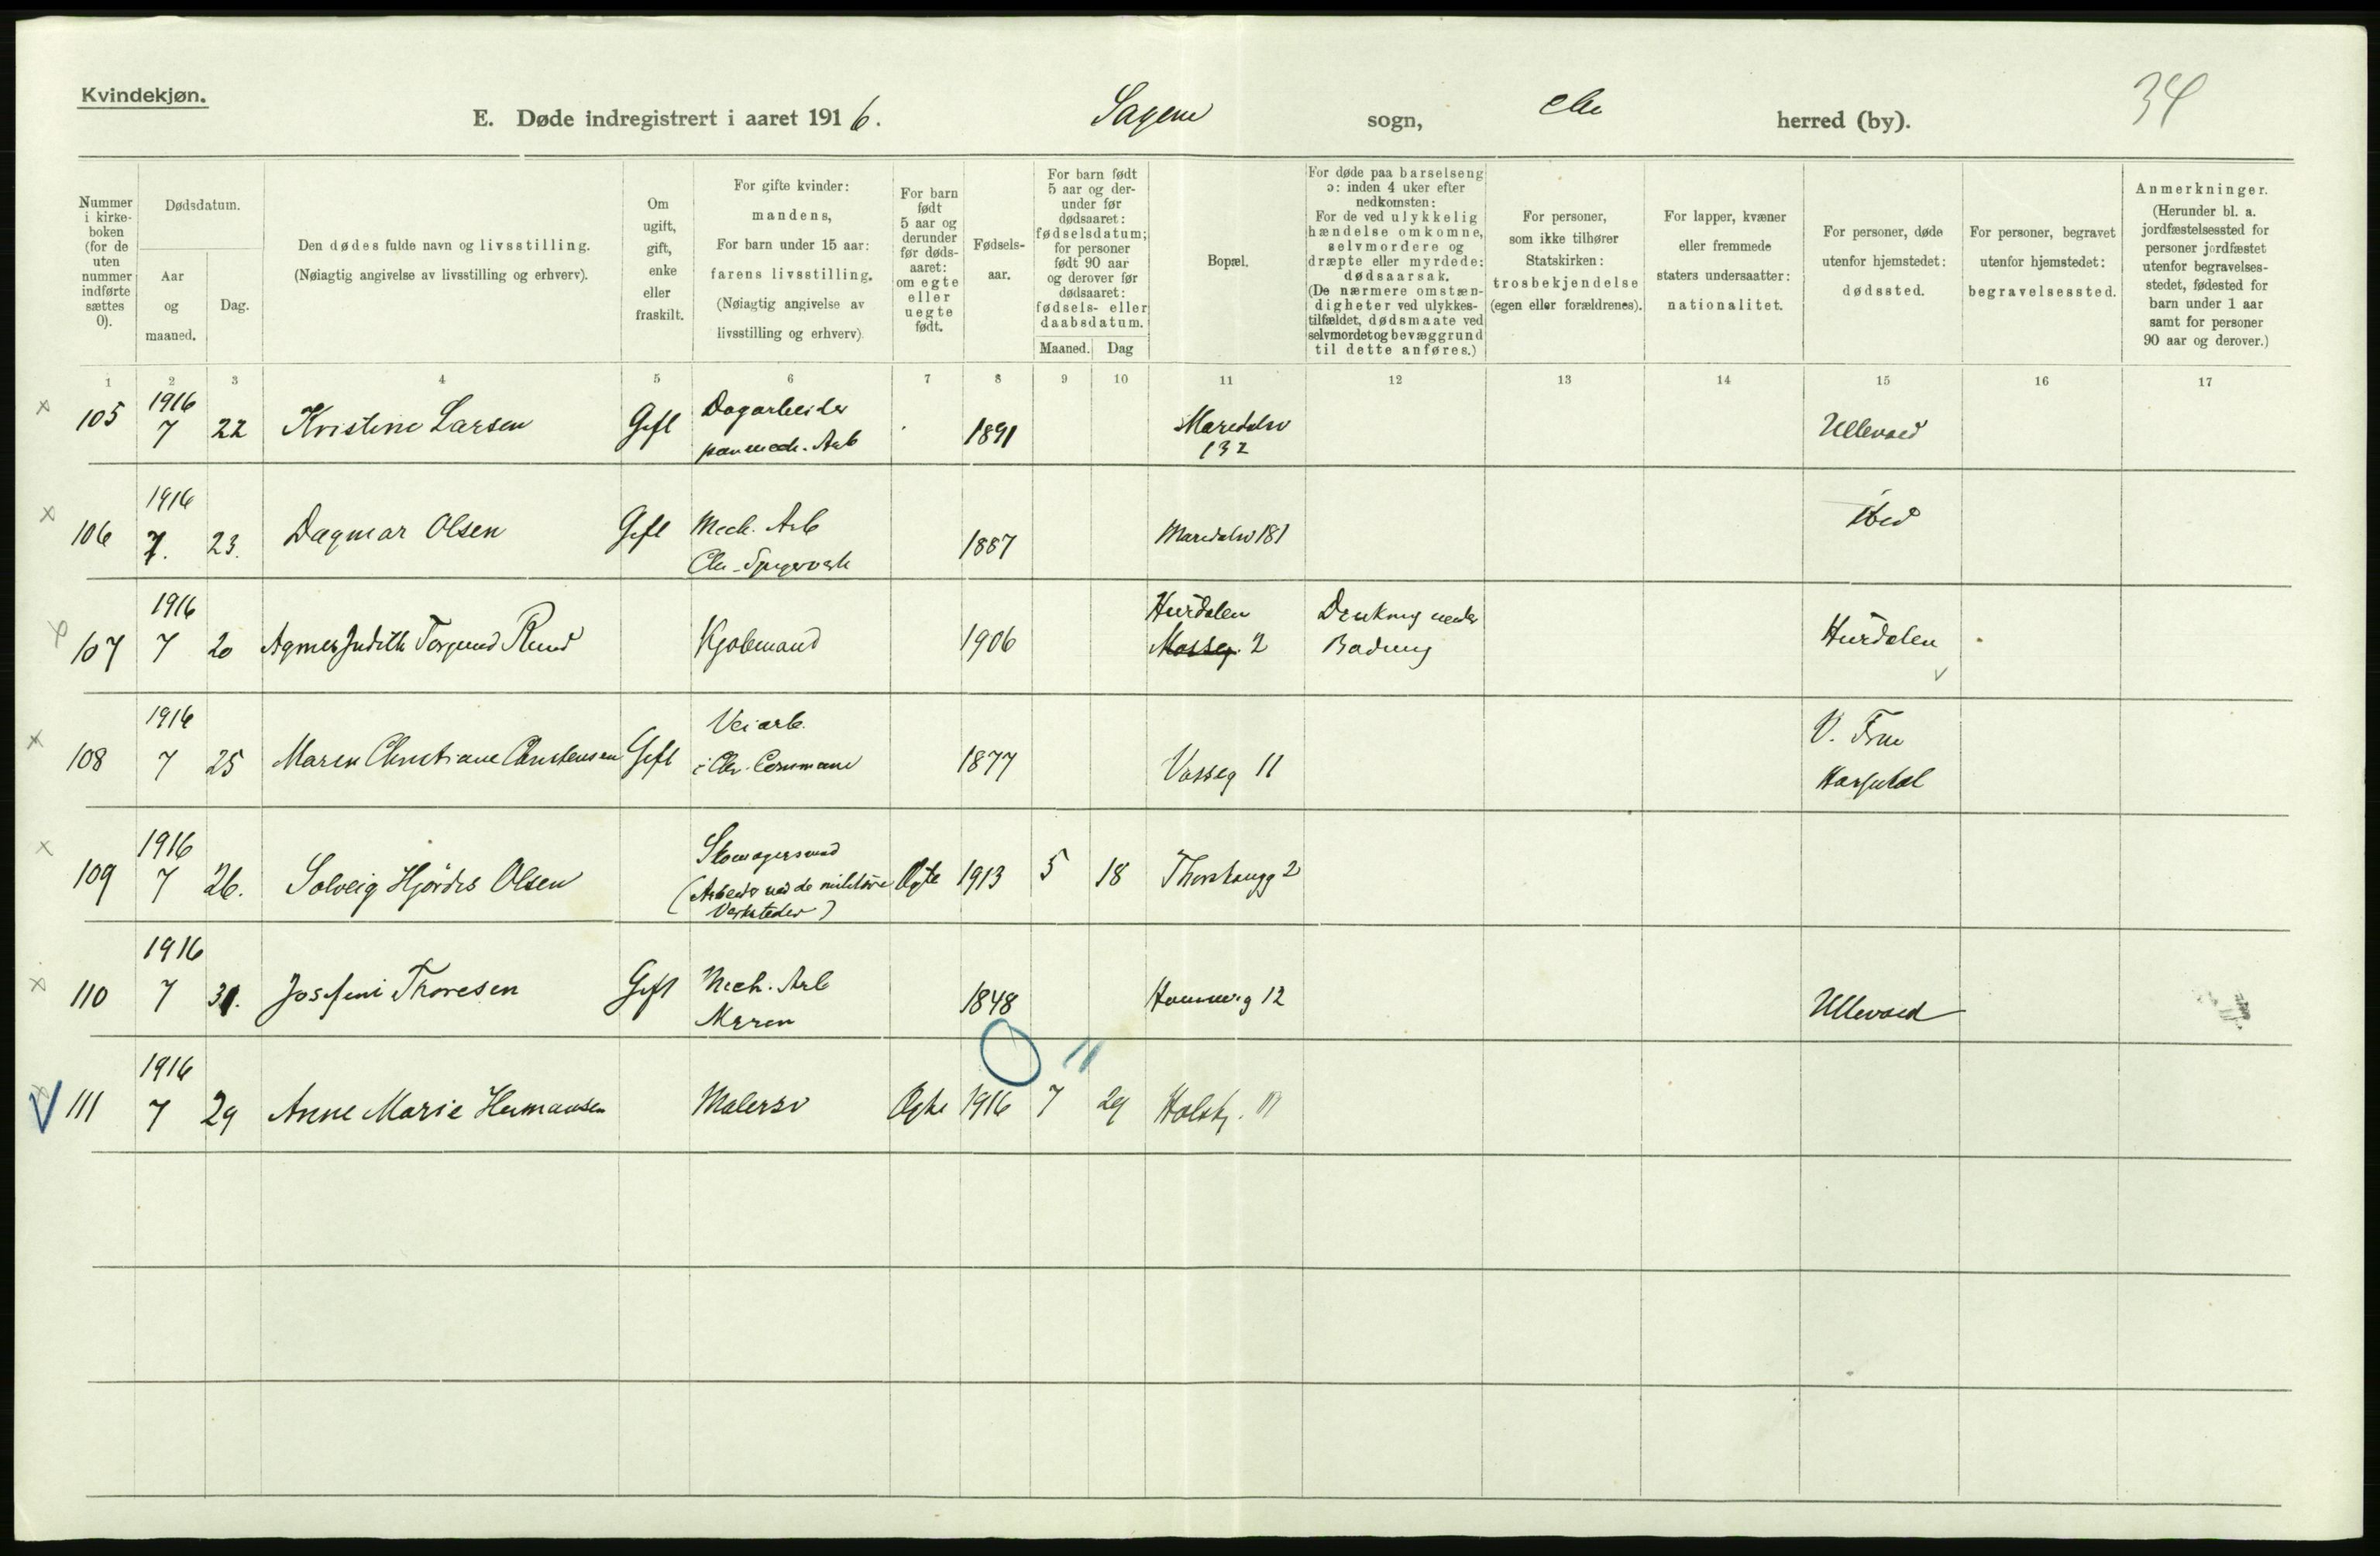 Kvindekjøn.
E. Døde indregistrert i aaret 1916. Sagene sogn, Chr herred (by). 34
Nummer i kirke-boken (for de uten nummer indførte sættes 0).
Dødsdatum.
Aar og maaned.
Dag.
Den dødes fulde navn og livsstilling.
(Nøiagtig angivelse av livsstilling og erhverv).
Om ugift, gift, enke eller fraskilt.
For gifte kvinder: mandens,
For barn under 15 aar: farens livsstilling.
(Nøiagtig angivelse av livsstilling og erhverv).
For barn født 5 aar og derunder før døds-aaret: om egte eller uegte født.
Fødsels-aar.
For barn født 5 aar og der-under før dødsaaret: fødselsdatum; for personer født 90 aar og derover før dødsaaret: fødsels- eller daabsdatum.
Maaned. Dag
Bopæl.
For døde paa barselseng ɔ: inden 4 uker efter nedkomsten:
For de ved ulykkelig hændelse omkomne, selvmordere og dræpte eller myrdede: dødsaarsak.
(De nærmere omstæn-digheter ved ulykkes-tilfældet, dødsmaate ved selvmordet og bevæggrund til dette anføres.)
For personer, som ikke tilhører Statskirken: trosbekjendelse (egen eller forældrenes).
For lapper, kvæner eller fremmede staters undersaatter: nationalitet.
For personer, døde utenfor hjemstedet: dødssted.
For personer, begravet utenfor hjemstedet: begravelsessted.
Anmerkninger.
(Herunder bl. a. jordfæstelsessted for personer jordfæstet utenfor begravelses-stedet, fødested for barn under 1 aar samt for personer 90 aar og derover.)
1 2 3 4 5 6 7 8 9 10 11 12 13 14 15 16 17
x 105 1916 7 22 Kristine Larsen Gift Dagarbeider paa mech. Arb 1891 Maridalsv 132 Ullevaal
x 106 1916 7. 23. Dagmar Olsen Gift Mech. Arb Chr. Spigerverk 1887 Maridalsv 181 ibid
x 107 1916 7 20 Agnes Judith Torgund Ruud Kjøbmand 1906 Hurdalen Mosseg. 2 Drukning under Badning Hurdalen
x 108 1916 7 25 Maren Christiane Christensen Gift Veiarb. i Chr. Commune 1877 Vosseg 11 V. Frue Hospital
x 109 1916 7 26. Solveig Hjørdis Olsen Skomagersvend (Arbeider ved de militære Verksteder) Ægte 1913 5 18 Thorshaugg 2
x 110 1916 7 31. Josefine Thoresen Gift Mech. Arb Myren 1848 12 Ullevaal
x 111 1916 7 29 Anne Marie Hermansen Malersv Ægte 1916 7 29 Holstg.